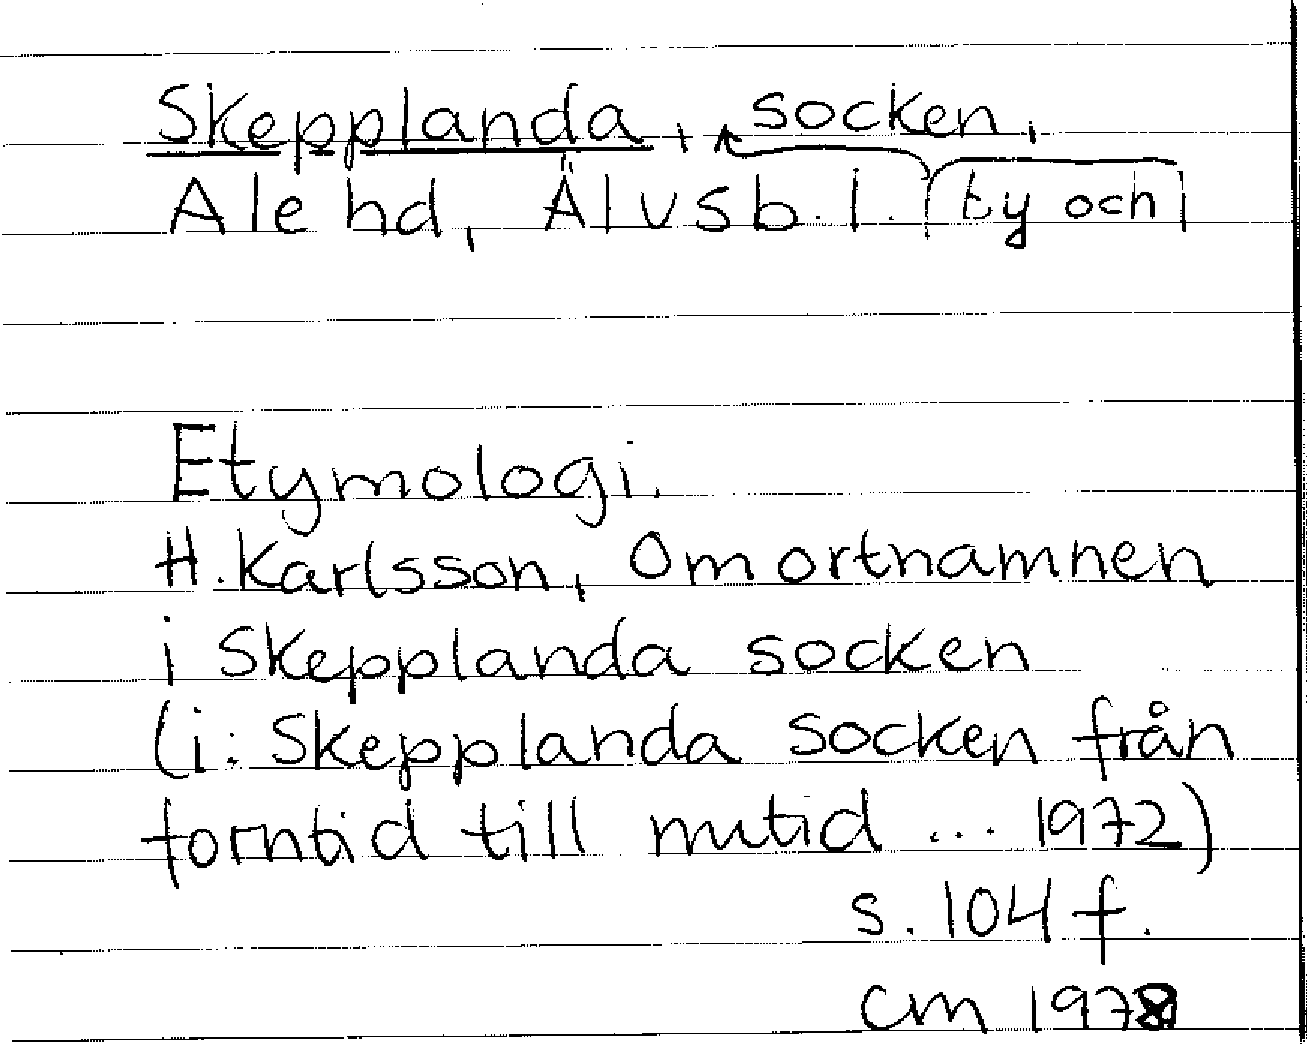 Skepplanda, socken,
Ale hd, Älvsb. l. ty och
Etymologi.
H. Karlsson, Om ortnamnen
i Skepplanda socken
(i: Skepplanda socken från
forntid till nutid ... 1972)
s. 104 f.
CM 1978